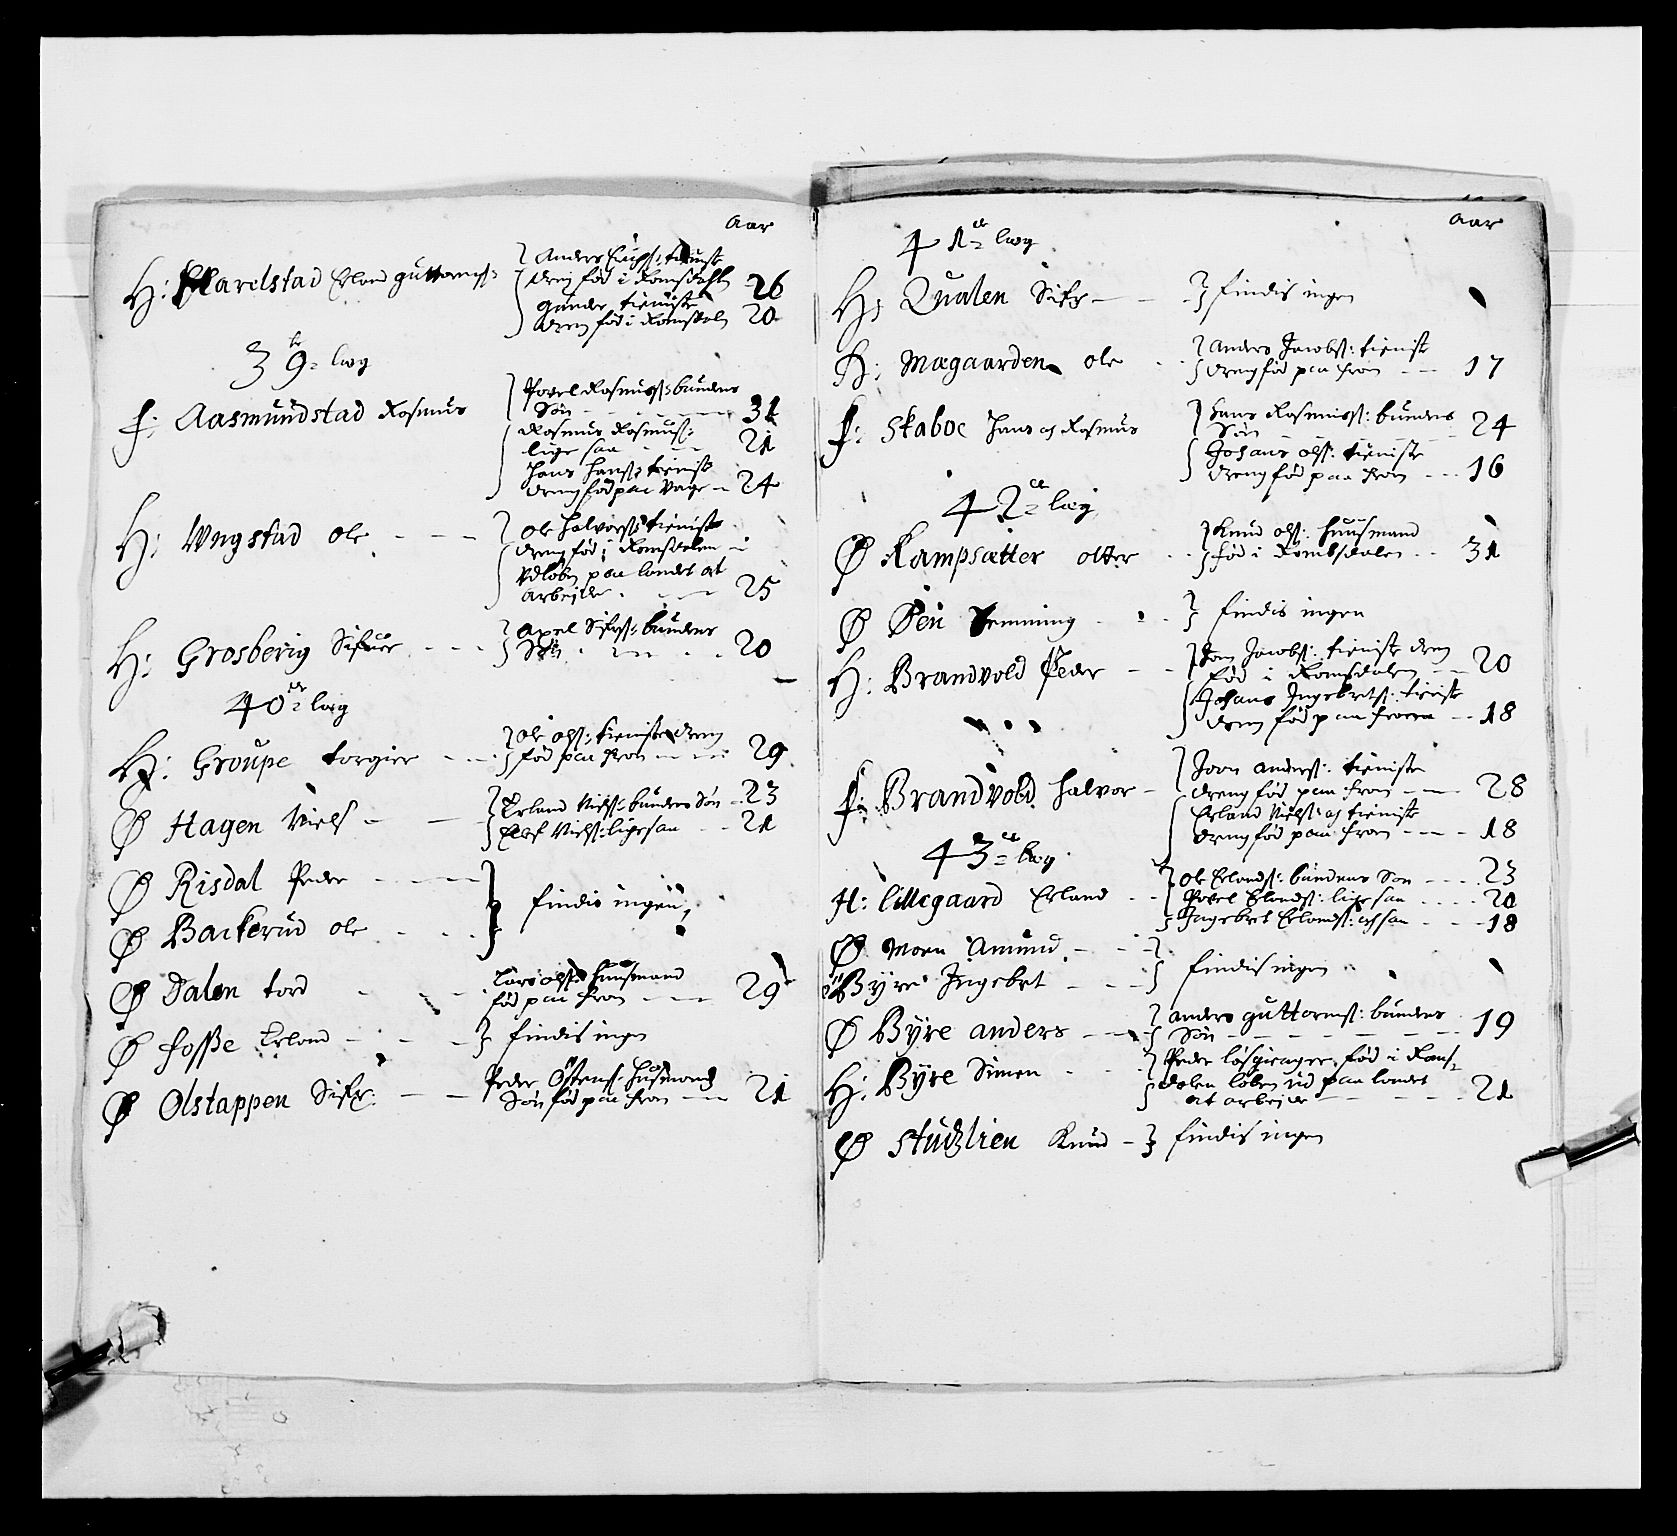 Aar
H: Harelstad Erland guttormss:
Anders tieniste
dreng fød i Romsdahln 26
Gunder tieniste
dreng fød i Romsdaln 20
39de læg
f: Aasmundstad Rasmus
Povel Rasmusss: bundens
Søn 31
Rasmus Rasmuss:
lige saa 21
Hans Hanss: tieniste
dreng fød paa Vage 24
H: Wngstad Ole
Ole Halvorss: tieniste
dreng fød i Romsdalen
Vdløben paa landet at
arbejde 25
H: Grosberig Sifuer
Axel Sifrss: bundens
Søn 20
40de læg
H: Groupe torgier
Ole olss: tieniste dreng
fød paa Fron 29
Ø Hagen Niels
Erland Nielss: bundens Søn 23
Elef Nielss: ligesaa 21
Ø Risdal Peder
Ø Backerud ole
findis ingen
Ø Dalen tord
Lars olss: huusmand
fød paa Fron 29
Ø fosse Erland
findis ingen
Ø Olstappen Sifr:
Peder Østenss: Husmands
Søn fød paa Fron 21
Aar
41de læg
H: Qualen Sifr
findis ingen
H: Mægaarden ole
Anders Jacobss: tieniste
dreng fød paa Fron 17
f: Skaboe Hans og Rasmus
Hans Rasmusss: bundens
Søn 24
Johans olss: tieniste
dreng fød paa Fron 16
42de læg
Ø Kampsætter otter
Knud olss: huusmand
fød i Rombsdalen 31
Ø Øen Hemming
findis ingen
H: Brandvold Peder
Jon Jacobss: tieniste dreng
fød i Romsdalen 20
Johans Ingebretss: tieniste
dreng fød paa Fronn 18
f: Brandvold Halvor
Joon anderss: tieniste
dreng fød paa Fron 28
Erland Nielss: og tieniste
dreng fød paa Fron 18
43de læg
H: Lillegaard Erland
ole Erlandss: bundens Søn 23
Povel Erlandss: lige saa 20
Ingebret Erlandss: og saa 18
Ø Moen Amund
Ø Byre Ingebret
findis ingen
Ø Byre anders
anders guttormss: bundens
Søn 19
H: Byre Simen
Peder løsgienger fød i Roms-
dalen løben ud paa landet
at arbejde 21
Ø Stutzlien Knud
findis ingen